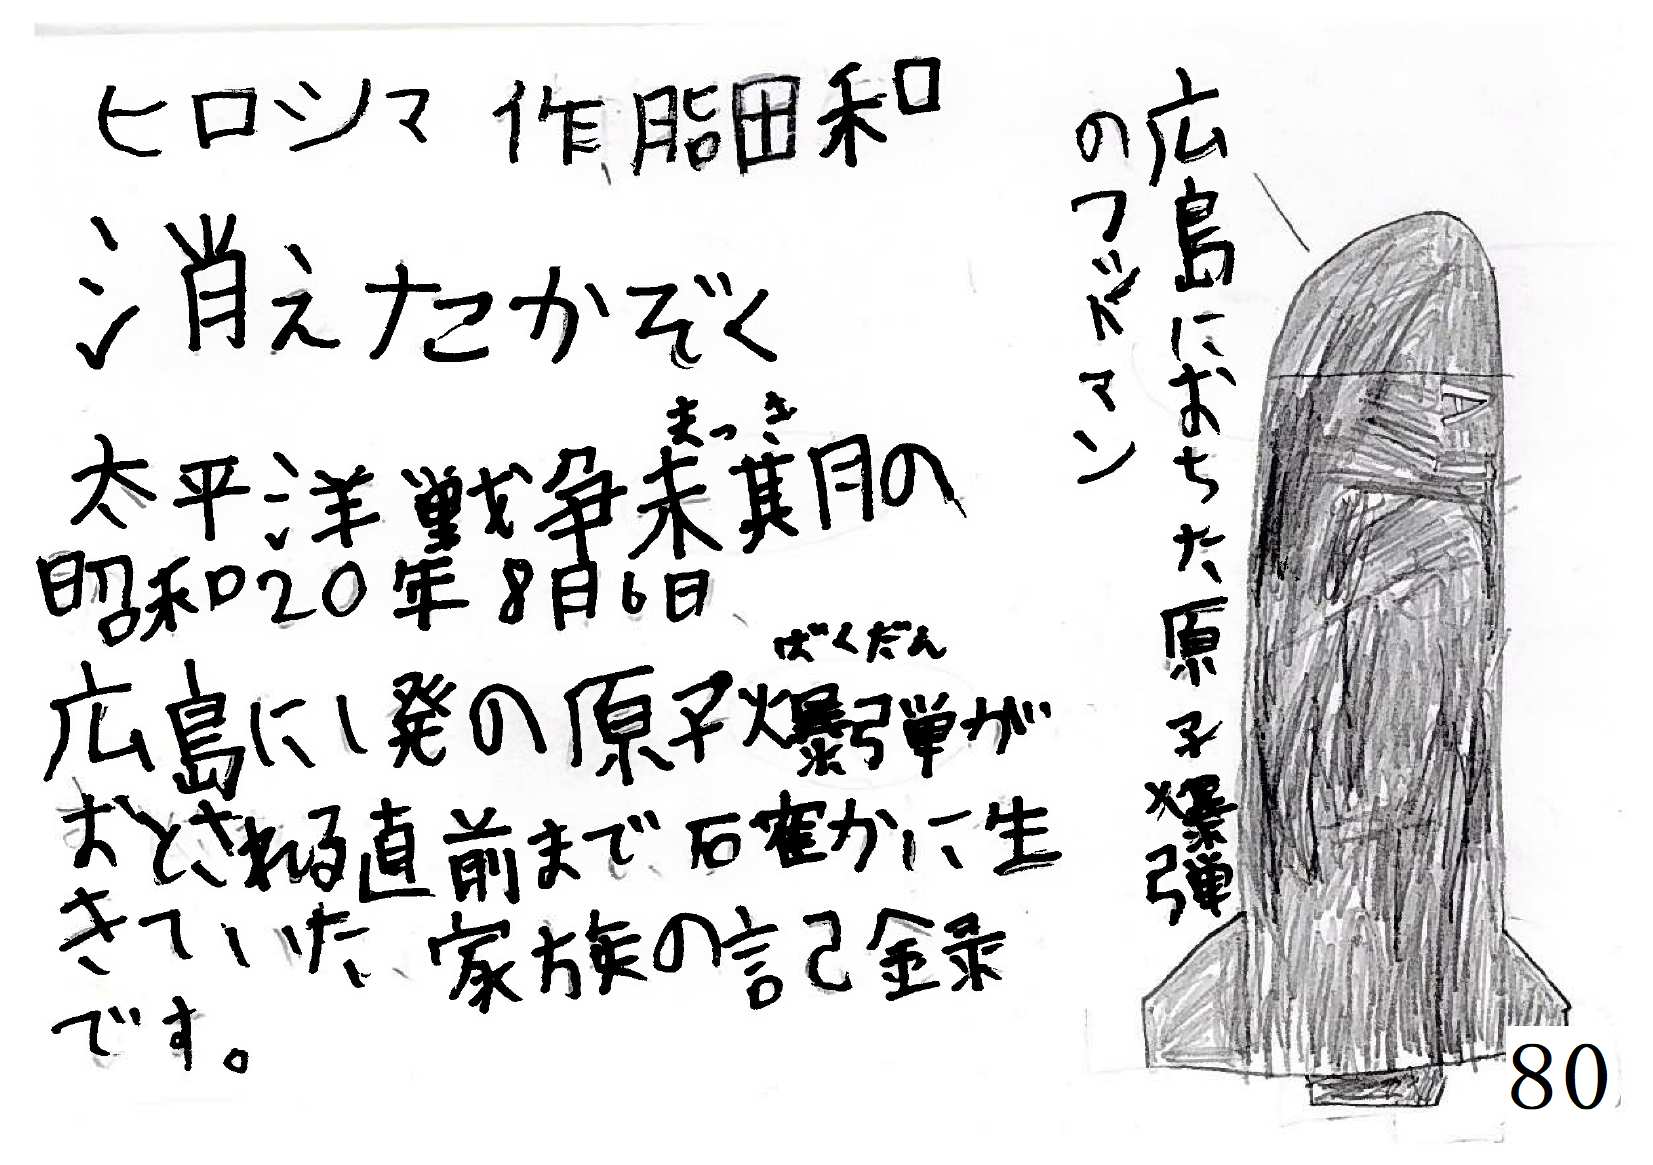 ヒロシマ 作 脂田和
消えたかぞく
まっき
太平洋戦争末期の
昭和20年8月6日
ばくだん
広島に1発の原子爆弾が
おとされる直前まで確かに生
きていた家族の記録
です。
広島におちた原子爆弾
のフッドマン
80